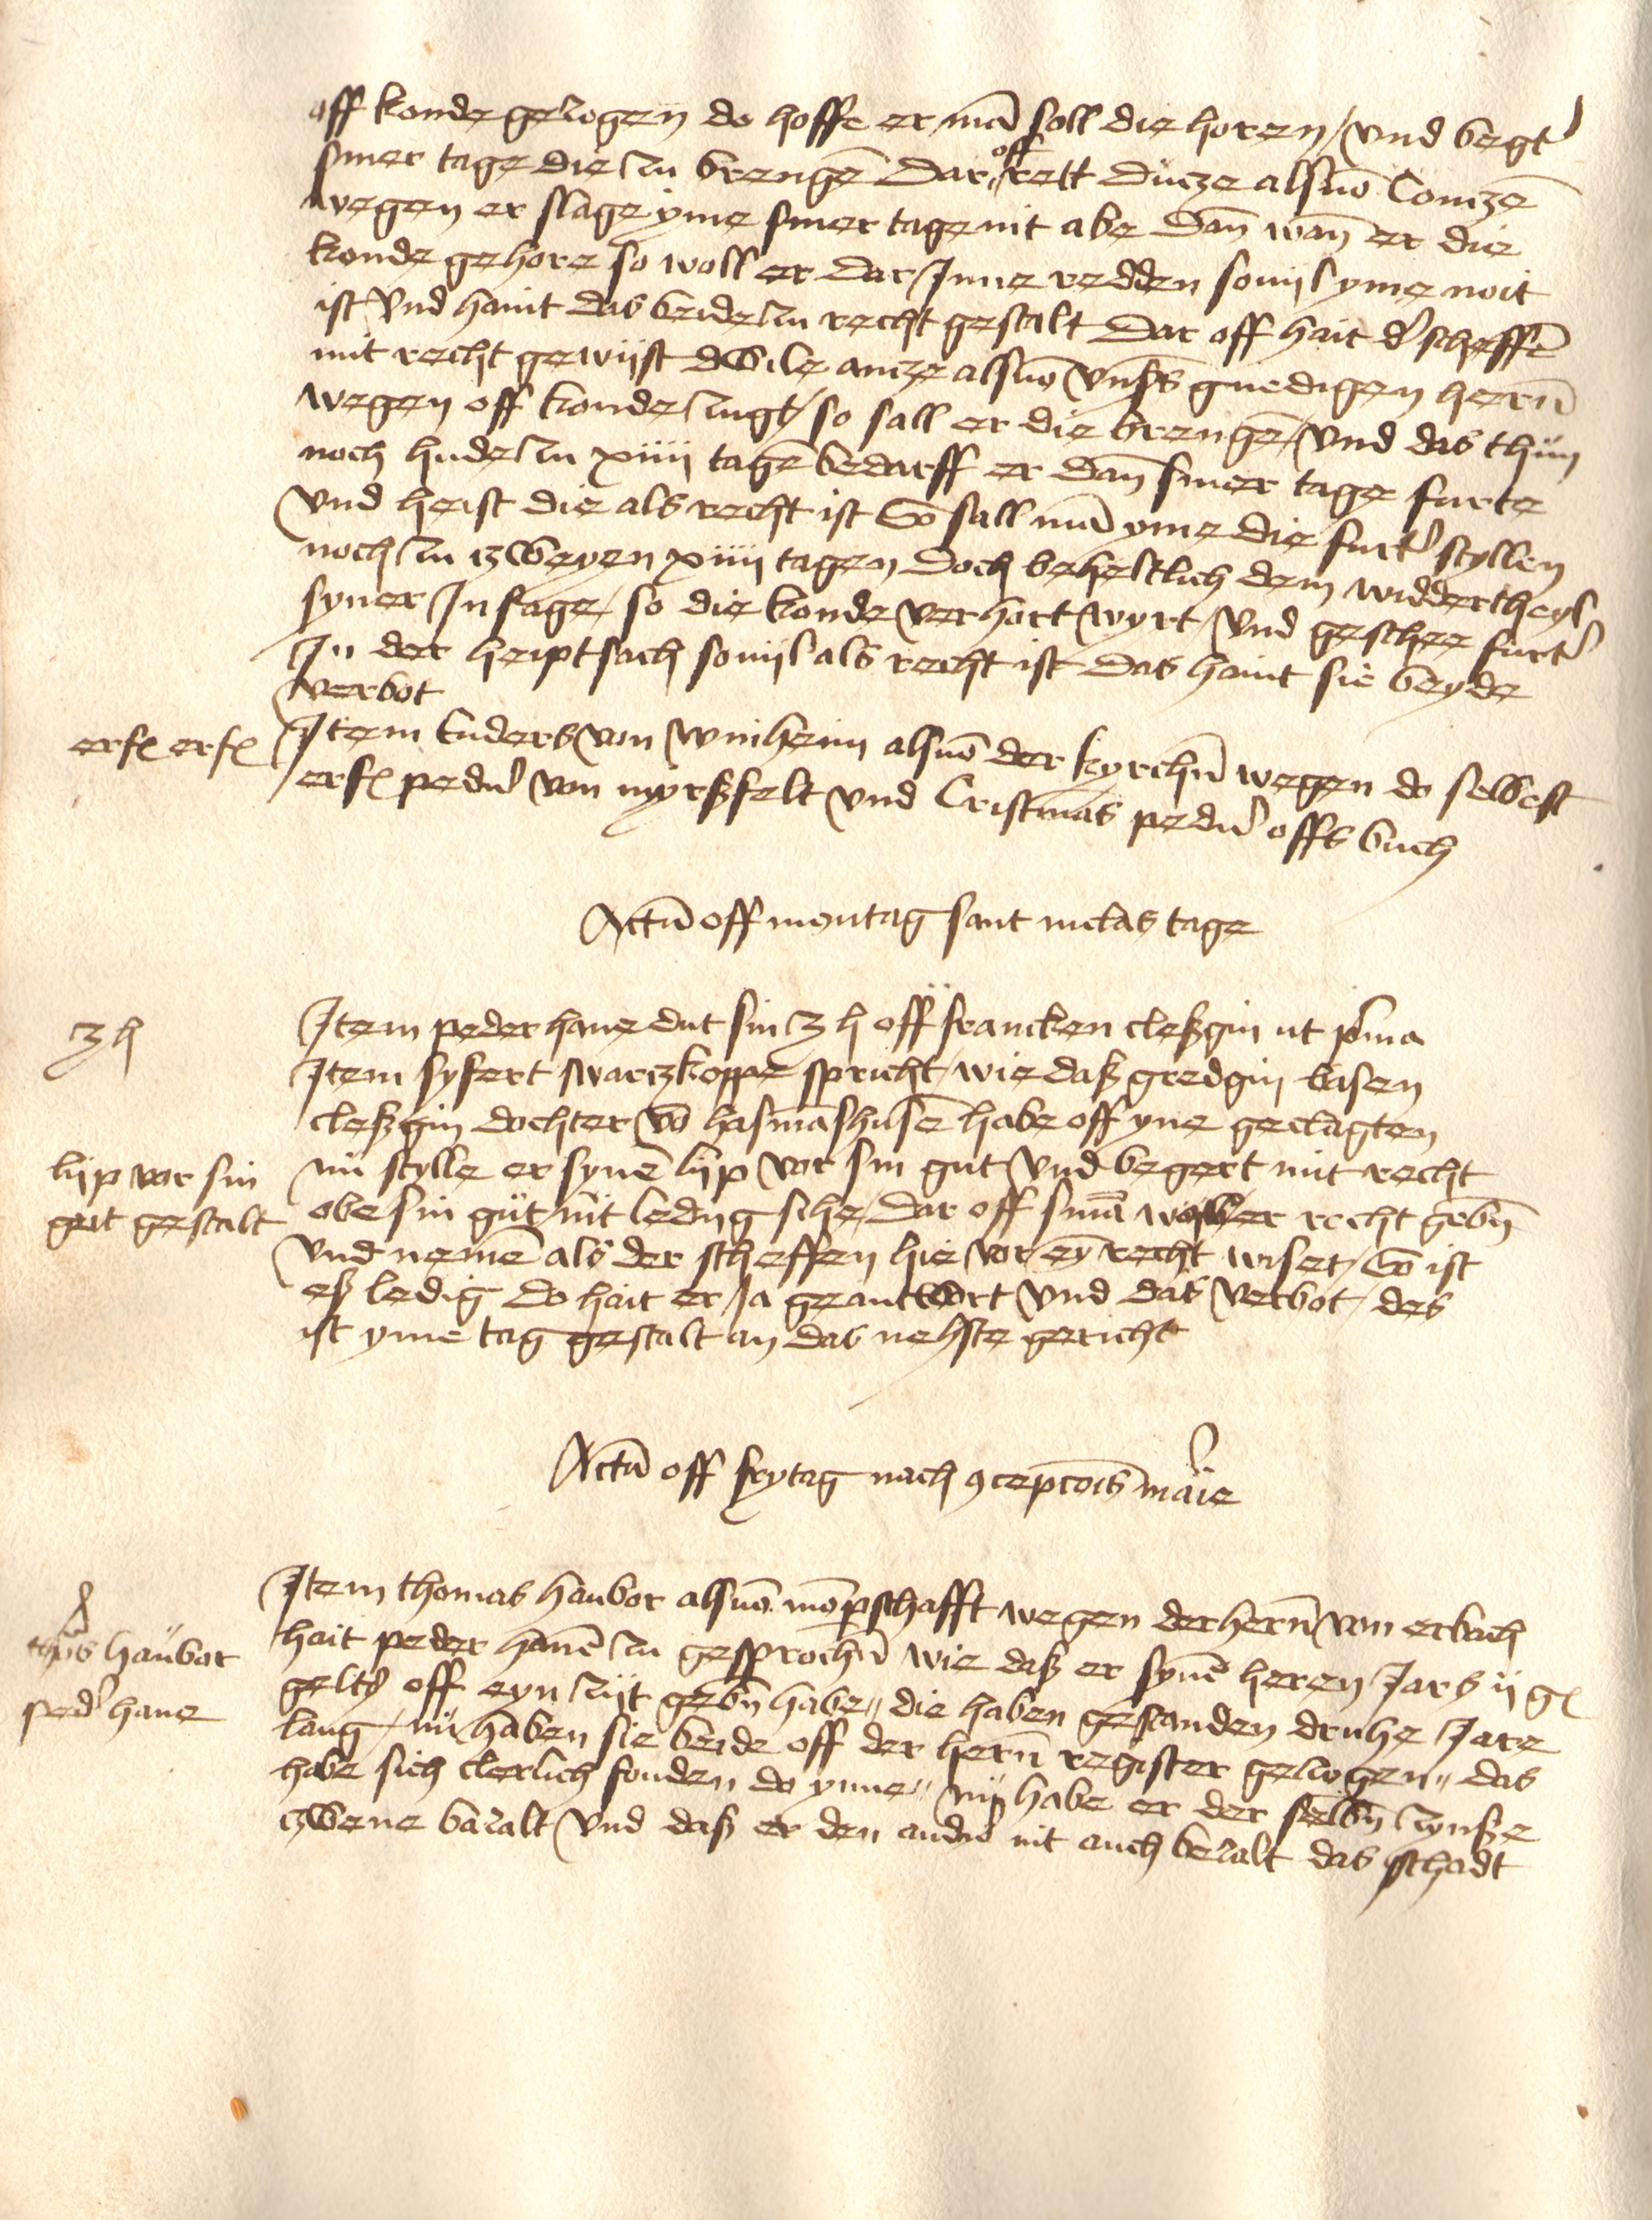 off konde gezogen do hoffe er man soll die horen / und begt
syner tage die zu brengen Dar off rett Dincze als von Contzen
wegen er slage yme syner tage nit abe Dan wan er die
konde gehore so woll er dar Inne redden sovijl yme noit
ist Und haint das beide zu recht gestalt Dar off hait der scheffen
mit recht gewijst dwile antze als von unsers gnedigen hern
wegen off konde zugt / so sall er die brengen / Und das thun
noch hude zu xiiii tagen bedarff er dan syner tage furte
Und heist die als recht ist So sall man yme die furter styllen
noch zu zweyen xiiii tagen Doch beheltlich dem widdertheyl
syner Insage / so die konde verhort wyrt / Und geschee furter
In der heiptsach sovijl als recht ist Das haint sie beyde
verbot
erf erf
Item Enders von Winheim als von der kyrchen wegen do selbest
erf peder von myrßfelt Und Cristmas peder offs buch
Actum off montag sant niclas tage
3 h
Item peder hane dut sin 3 h off francken cleßgin ut prima
Item syfert swarczkoppe spricht / wie daß gredgin basen
cleßgin dochter von hasmanshusen habe off yne geclagten
lijp vor sin
gut gestalt
nu stylle er synen lijp vor sin gut Und begert mit recht
obe sin gut nit ledig sihe / Dar off sman woll er recht geben
Und nemen als der scheffen hie vor eyn recht wiset / So ist
eß ledig Do hait er Ja geantwort Und das verbot / des
ist yme tag gestalt an das nehste gericht
Actum off frytag nach concepcionis marie
thomas haubor
peder hane
Item thomas haubor als von momperschafft wegen der hern von erbach
hait peder hanen zu gesprochen wie daß er synen heren Jars ij gl
geltz off eyn zijt geben habe / die haben gestanden druhe Jare
lang / nu haben sie beide off der hern register gezogen / das
habe sich clerlich fonden do ynne / nu habe er der selben zynße
zwene bazalt Und daß er den andern nit auch bezalt das schadt